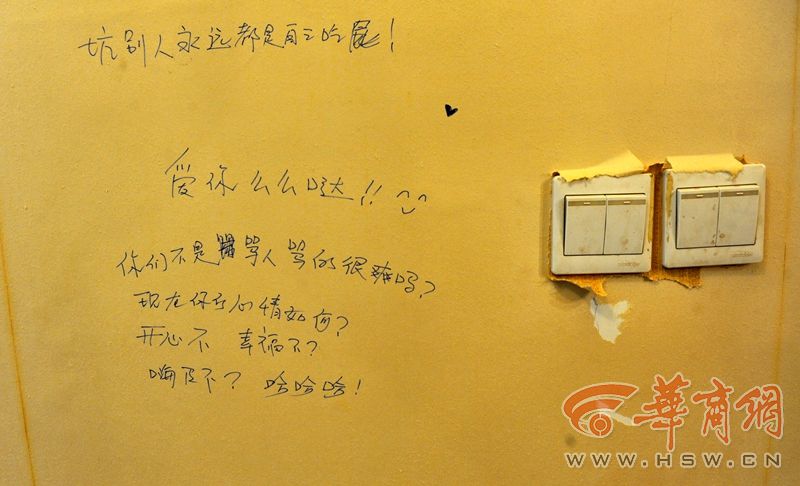 坑别人永远都是自己吃屁!
爱你么么哒!!
你们不是骂人骂的很爽吗?
现在你们心情如何?
开心不 幸福不?
嗨皮不? 哈哈哈!
華商網
WWW.HSW.CN